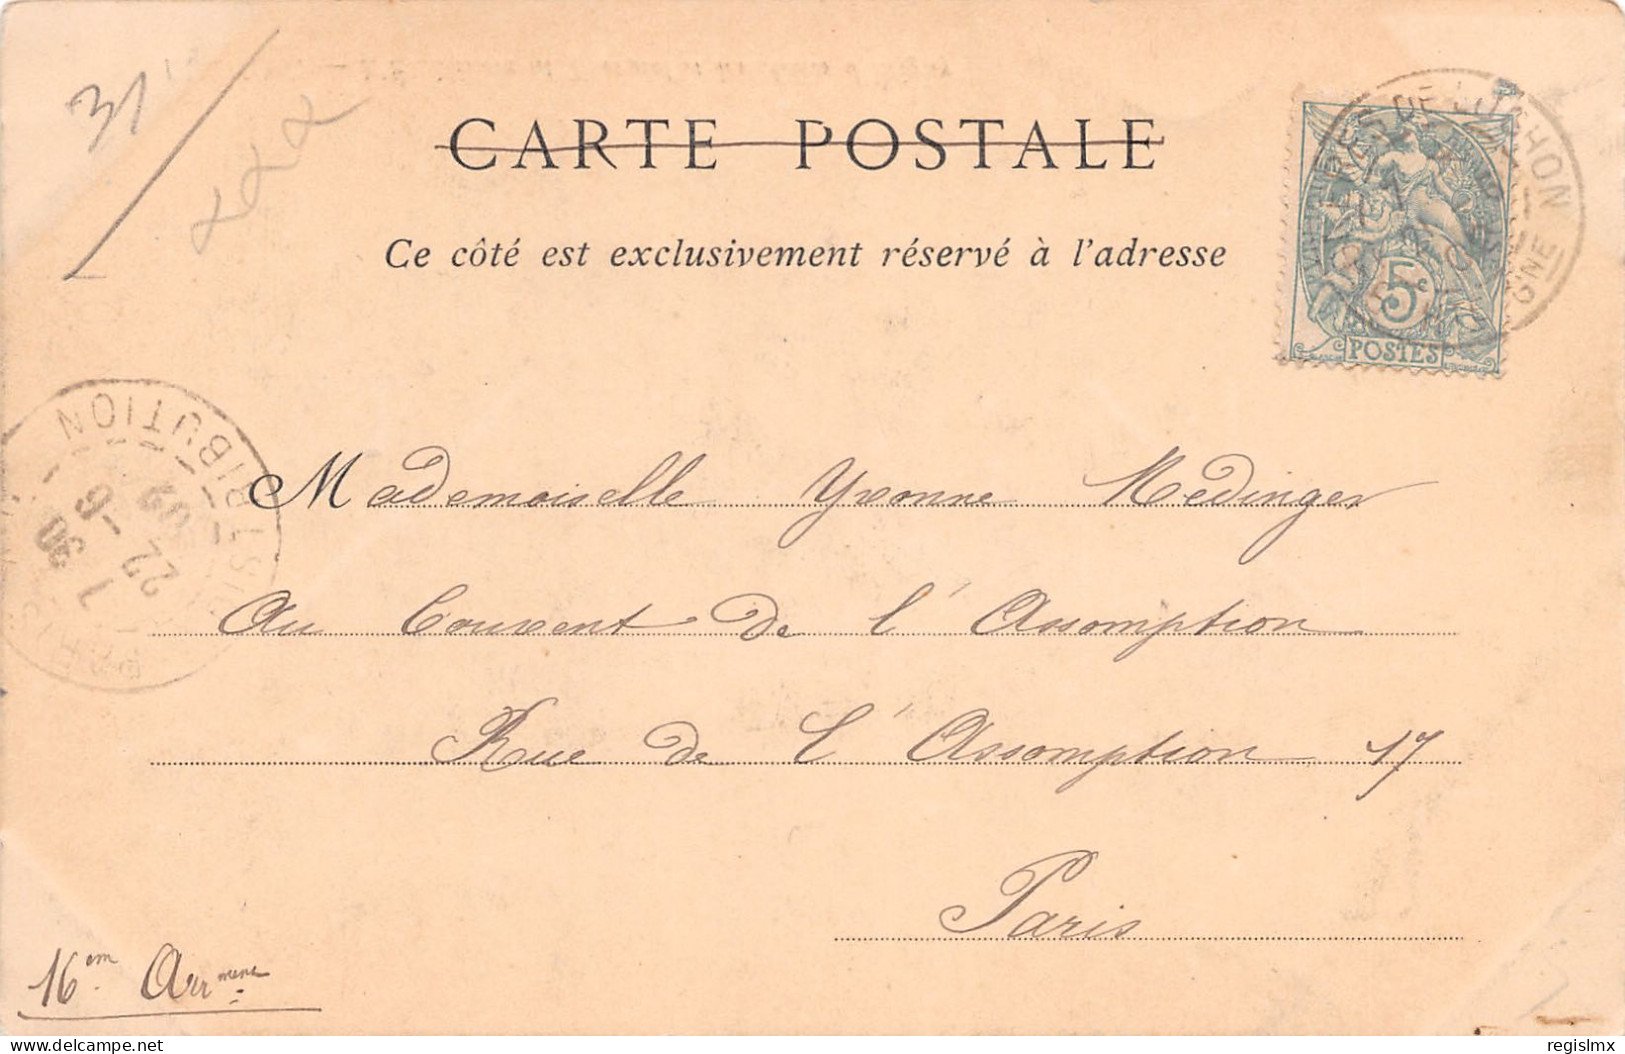 31
CARTE POSTALE
Ce côté est exclusivement réservé à l'adresse
5c
POSTES
DISTRIBUTION
7 30
22 -6
Mademoiselle Yvonne Medinger
Au Couvent de l'Assomption
Rue de l'Assomption 17
Paris
16em Arrment
delcampe.net
regislmx